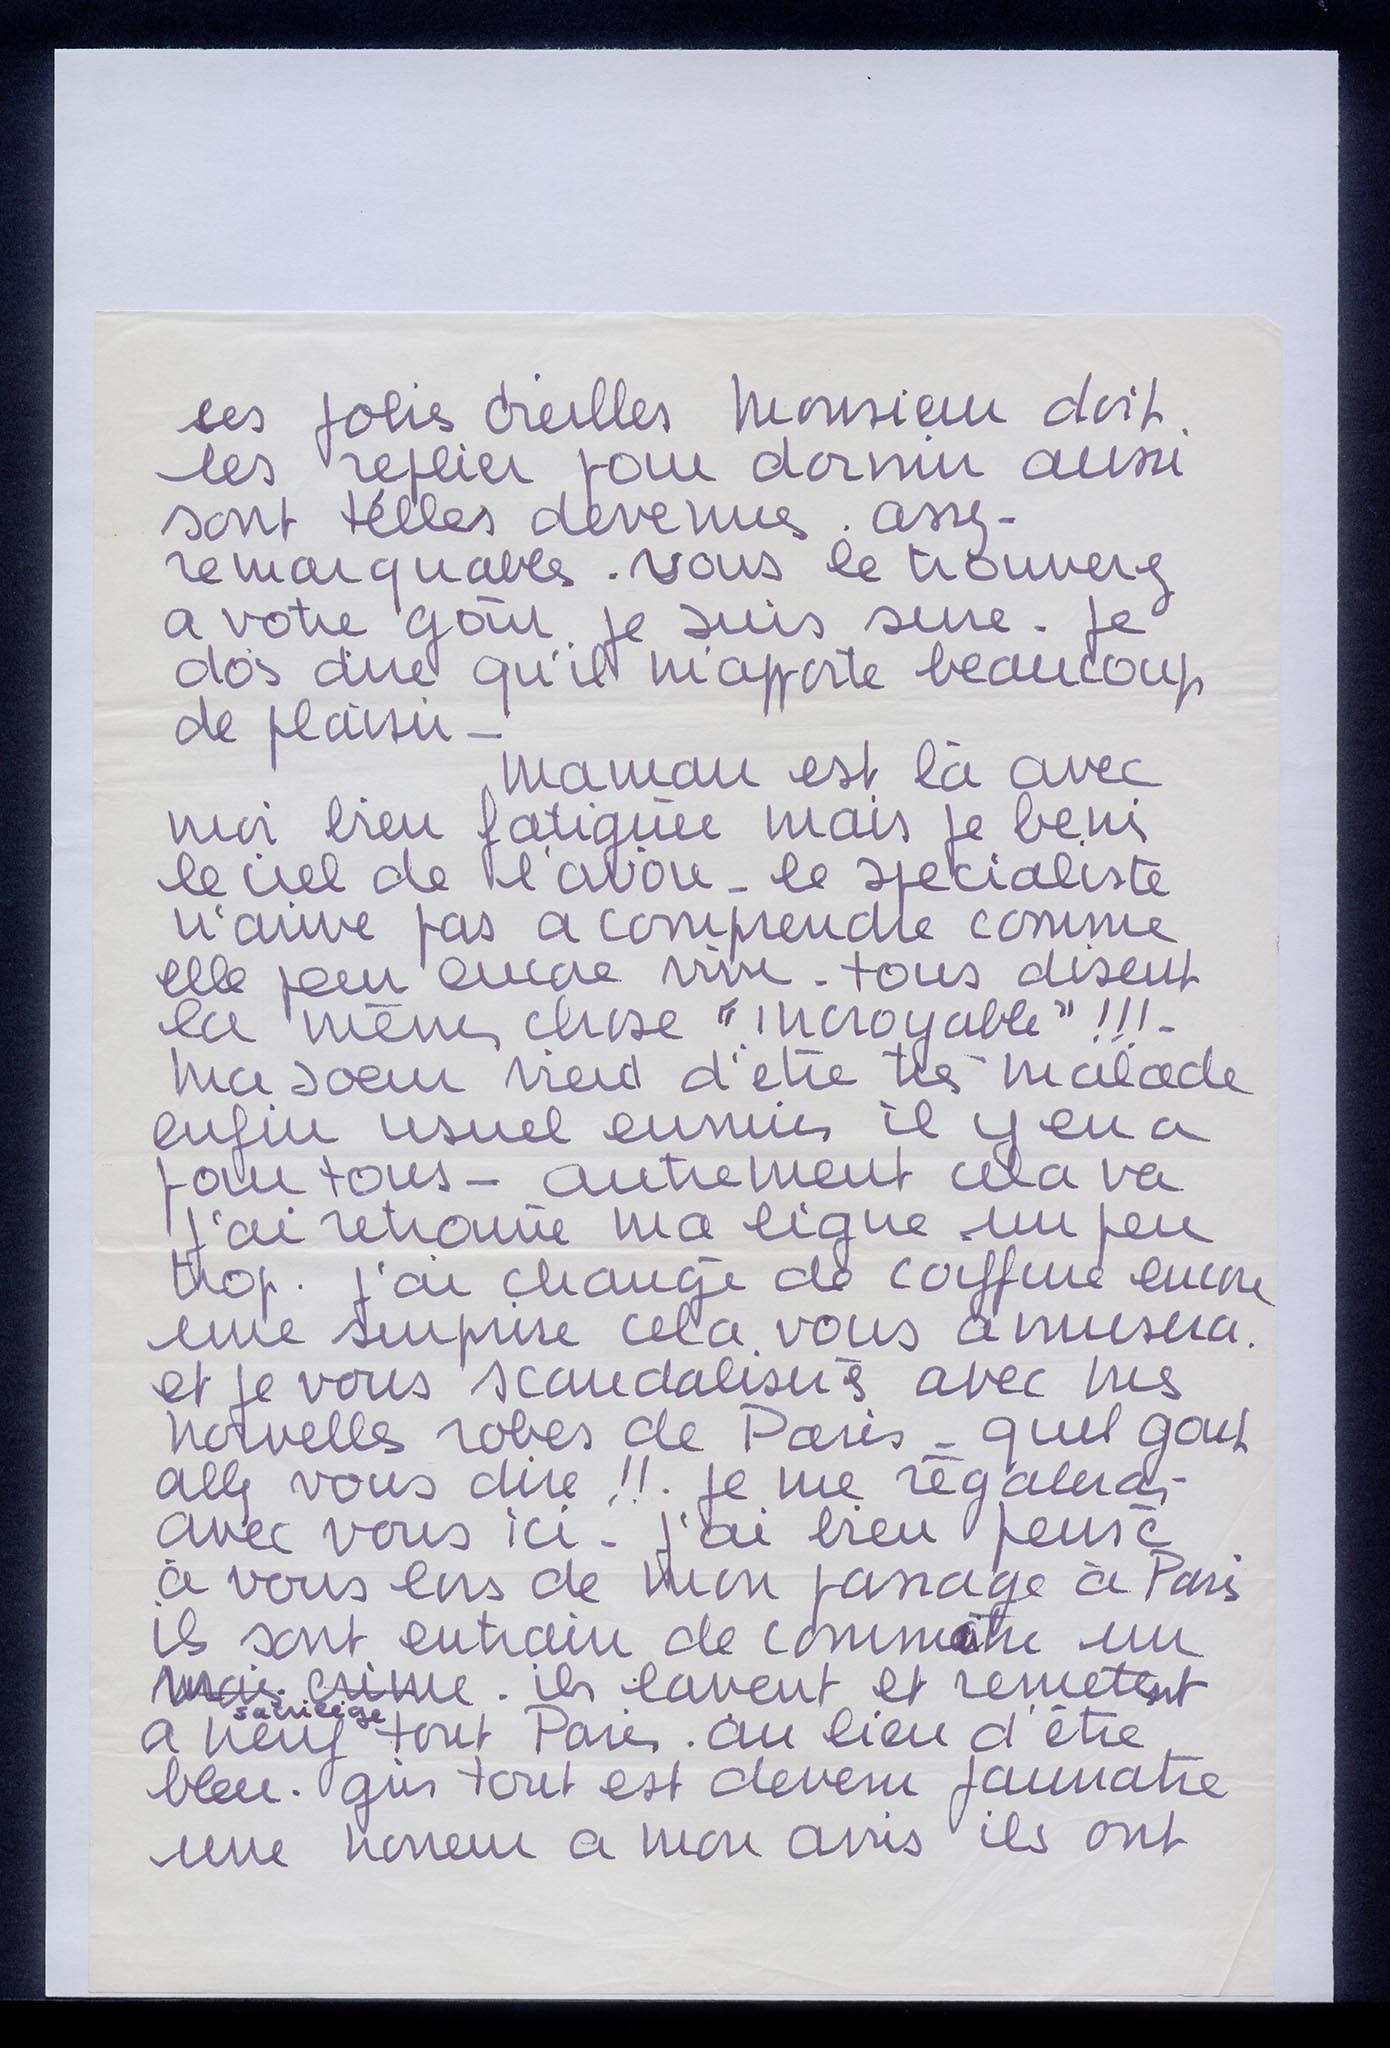 ses jolies oreilles Monsieur doit
les replier pour dormir aussi
sont t'elles devenues. assez
remarquables. vous le trouverez
a votre goût. je suis sure. je
dois dire qu'il m'apporte beaucoup
de plaisir –
maman est là avec
moi bien fatiguée mais je benis
le ciel de l'avoir – le specialiste
n'arrive pas a comprendre comme
elle peu encore vivre – tous disent
la même chose "incroyable"!!! –
Ma soeur vient d'etre très malade
enfin usuel ennuis il y en a
pour tous – autrement cela va
j'ai retrouvé ma ligne un peu
trop. j'ai changé de coiffure encore
une surprise cela vous amusera.
et je vous scandaliserés avec mes
nouvelles robes de Paris – quel gout
allez vous dire!!. je me régalerai
avec vous ici – j'ai bien pensé
à vous lors de mon passage à Paris
ils sont entrain de commêtre un
mais crime. ils lavent et remetent
sacrilège
a neuf tout Paris. au lieu d'être
bleu. gris tout est devenu jaunatre
une horreur a mon avis ils ont